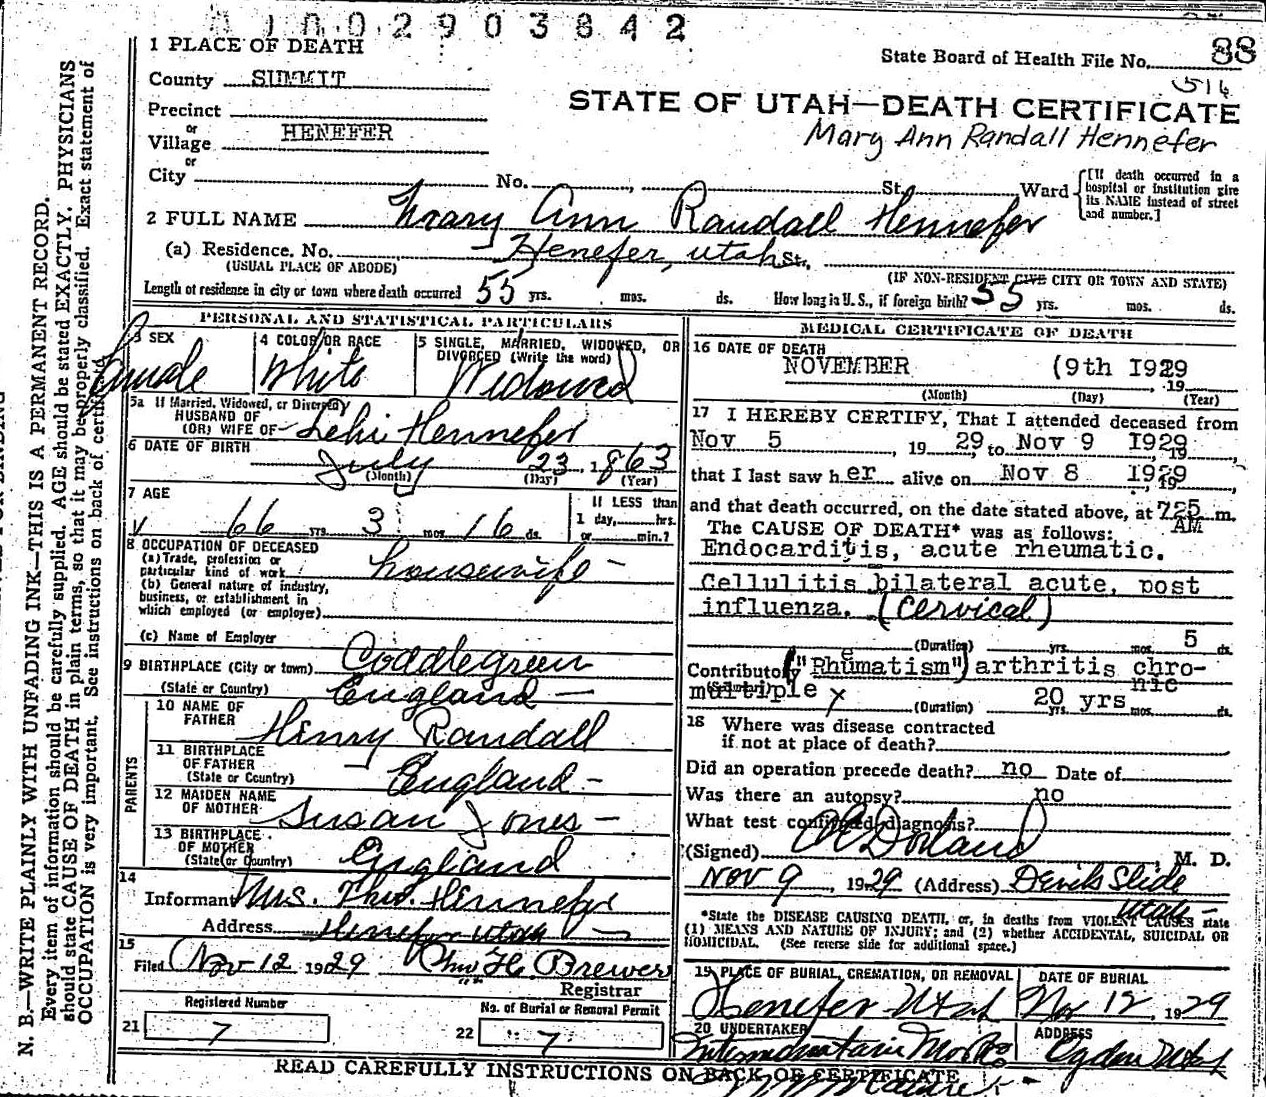 01002903842
1 PLACE OF DEATH
State Board of Health File No. 88
County SUMMIT
516
STATE OF UTAH—DEATH CERTIFICATE
Mary Ann Randall Hennefer
Precinct
or
Village HENEFER
or
City No. , St. Ward
[If death occurred in a
hospital or institution give
its NAME instead of street
and number.]
2 FULL NAME Mary Ann Randall Hennefer
(a) Residence. No. Henefer, Utah St.,
(USUAL PLACE OF ABODE) (IF NON-RESIDENT GIVE CITY OR TOWN AND STATE)
Length of residence in city or town where death occurred 55 yrs. mos. ds. How long in U. S., if foreign birth? 55 yrs. mos. ds.
PERSONAL AND STATISTICAL PARTICULARS
3 SEX
Female
4 COLOR OR RACE
White
5 SINGLE, MARRIED, WIDOWED, OR
DIVORCED (Write the word)
Widowed
5a If Married, Widowed, or Divorced
HUSBAND OF
(OR) WIFE OF Lehi Hennefer
6 DATE OF BIRTH
July 23, 1863
(Month) (Day) (Year)
7 AGE
66 yrs. 3 mos. 16 ds.
If LESS than
1 day, hrs.
or min.?
8 OCCUPATION OF DECEASED
(a) Trade, profession or
particular kind of work housewife -
(b) General nature of industry,
business, or establishment in
which employed (or employer)
(c) Name of Employer
9 BIRTHPLACE (City or town) Coddlegreen
(State or Country) England —
PARENTS
10 NAME OF
FATHER Henry Randall
11 BIRTHPLACE
OF FATHER
(State or Country) England -
12 MAIDEN NAME
OF MOTHER Susan Jones -
13 BIRTHPLACE
OF MOTHER
(State or Country) England
14
Informant Mrs. Thos. Hennefer
Address Henefer Utah
15
Filed Nov 12 1929 Thos H. Brewer
Registrar
Registered Number
21 7
No. of Burial or Removal Permit
22 7
MEDICAL CERTIFICATE OF DEATH
16 DATE OF DEATH
NOVEMBER (9th 1929
, 19
(Month) (Day) (Year)
17 I HEREBY CERTIFY, That I attended deceased from
Nov 5 , 1929, to Nov 9 1929
that I last saw her alive on Nov 8 1929
and that death occurred, on the date stated above, at 725 m.
AM
The CAUSE OF DEATH* was as follows:
Endocarditis, acute rheumatic.
Cellulitis bilateral acute, post
influenza. (Cervical)
(Duration) yrs. mos. 5 ds.
Contributory ("Rheumatism") arthritis chro-
nic
multiple
(Duration) 20 yrs mos. ds.
18 Where was disease contracted
if not at place of death?
Did an operation precede death? no Date of
Was there an autopsy? no
What test confirmed diagnosis?
(Signed) Dorland , M. D.
Nov 9 , 1929 (Address) Devils Slide
Utah -
*State the DISEASE CAUSING DEATH, or, in deaths from VIOLENT CAUSES state
(1) MEANS AND NATURE OF INJURY; and (2) whether ACCIDENTAL, SUICIDAL OR
HOMICIDAL. (See reverse side for additional space.)
19 PLACE OF BURIAL, CREMATION, OR REMOVAL
Henefer Utah
DATE OF BURIAL
Nov 12, 1929
20 UNDERTAKER
Intermountain Mort Co
ADDRESS
Ogden Utah
READ CAREFULLY INSTRUCTIONS ON BACK OF CERTIFICATE
N. B.—WRITE PLAINLY WITH UNFADING INK—THIS IS A PERMANENT RECORD.
Every item of information should be carefully supplied. AGE should be stated EXACTLY. PHYSICIANS
should state CAUSE OF DEATH in plain terms, so that it may be properly classified. Exact statement of
OCCUPATION is very important. See instructions on back of certificate.